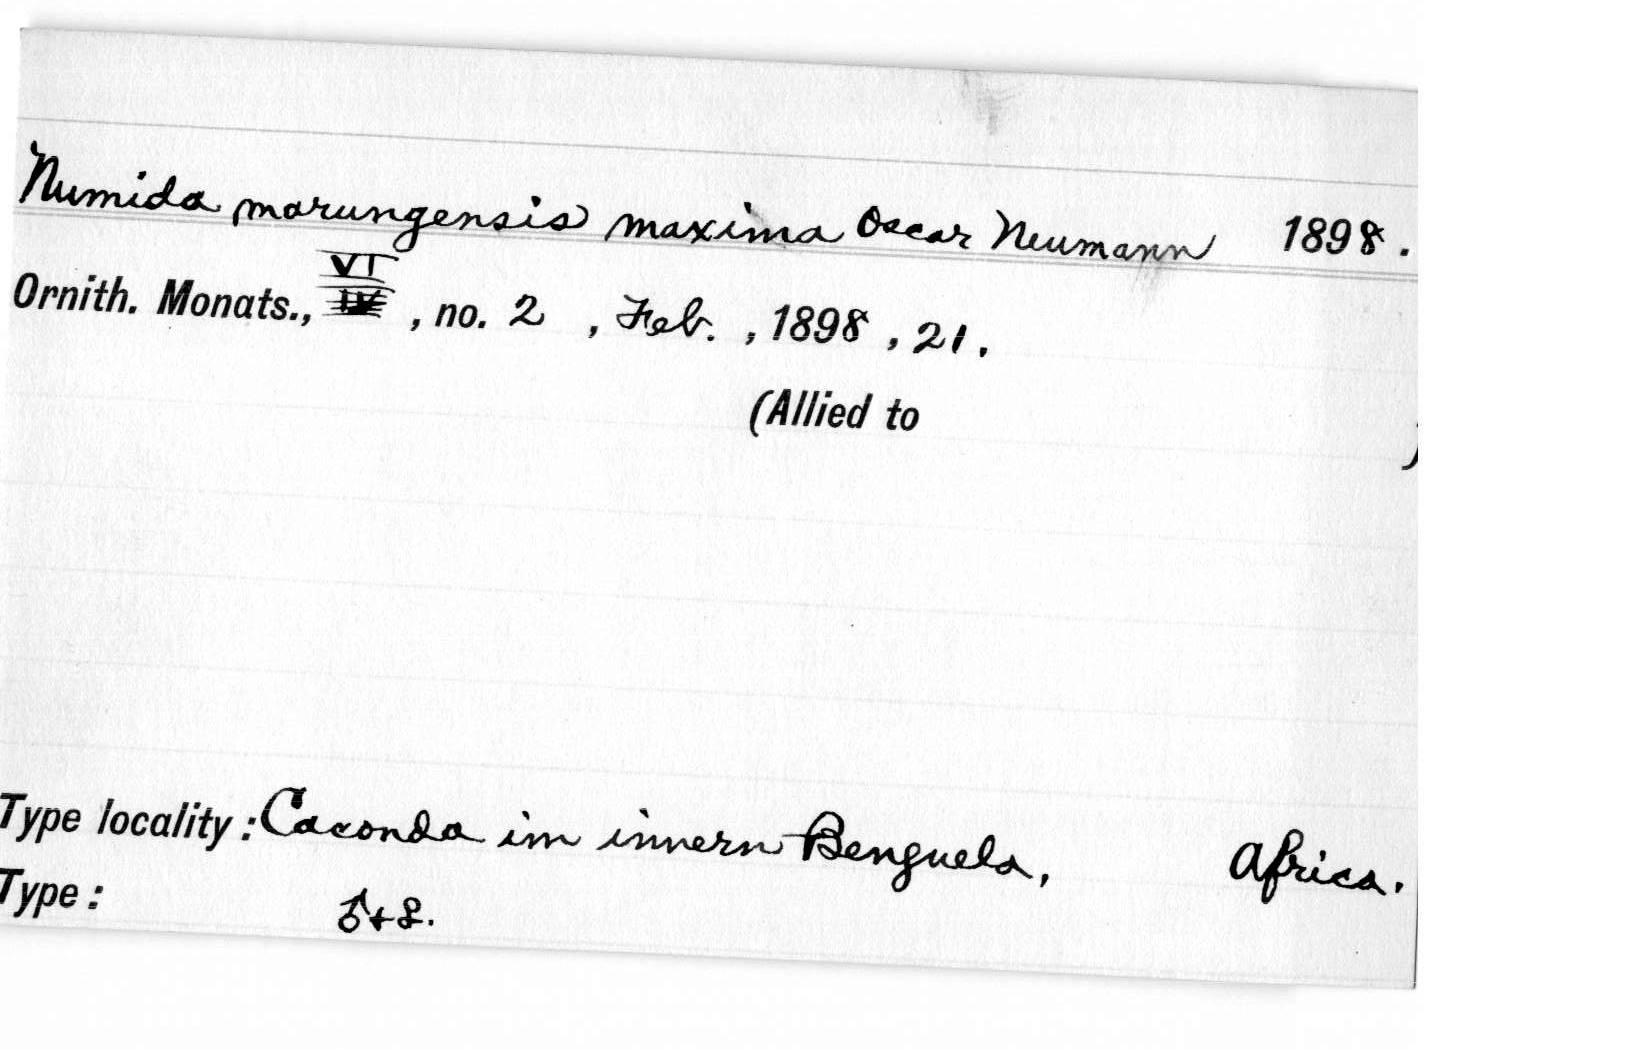 Numida marungensis maxima Oscar Neumann 1898.
Ornith. Monats., VI, no. 2, Feb., 1898, 21.
(Allied to )
Type locality: Caconda im innern Benguela, Africa.
Type: ♂+♀.